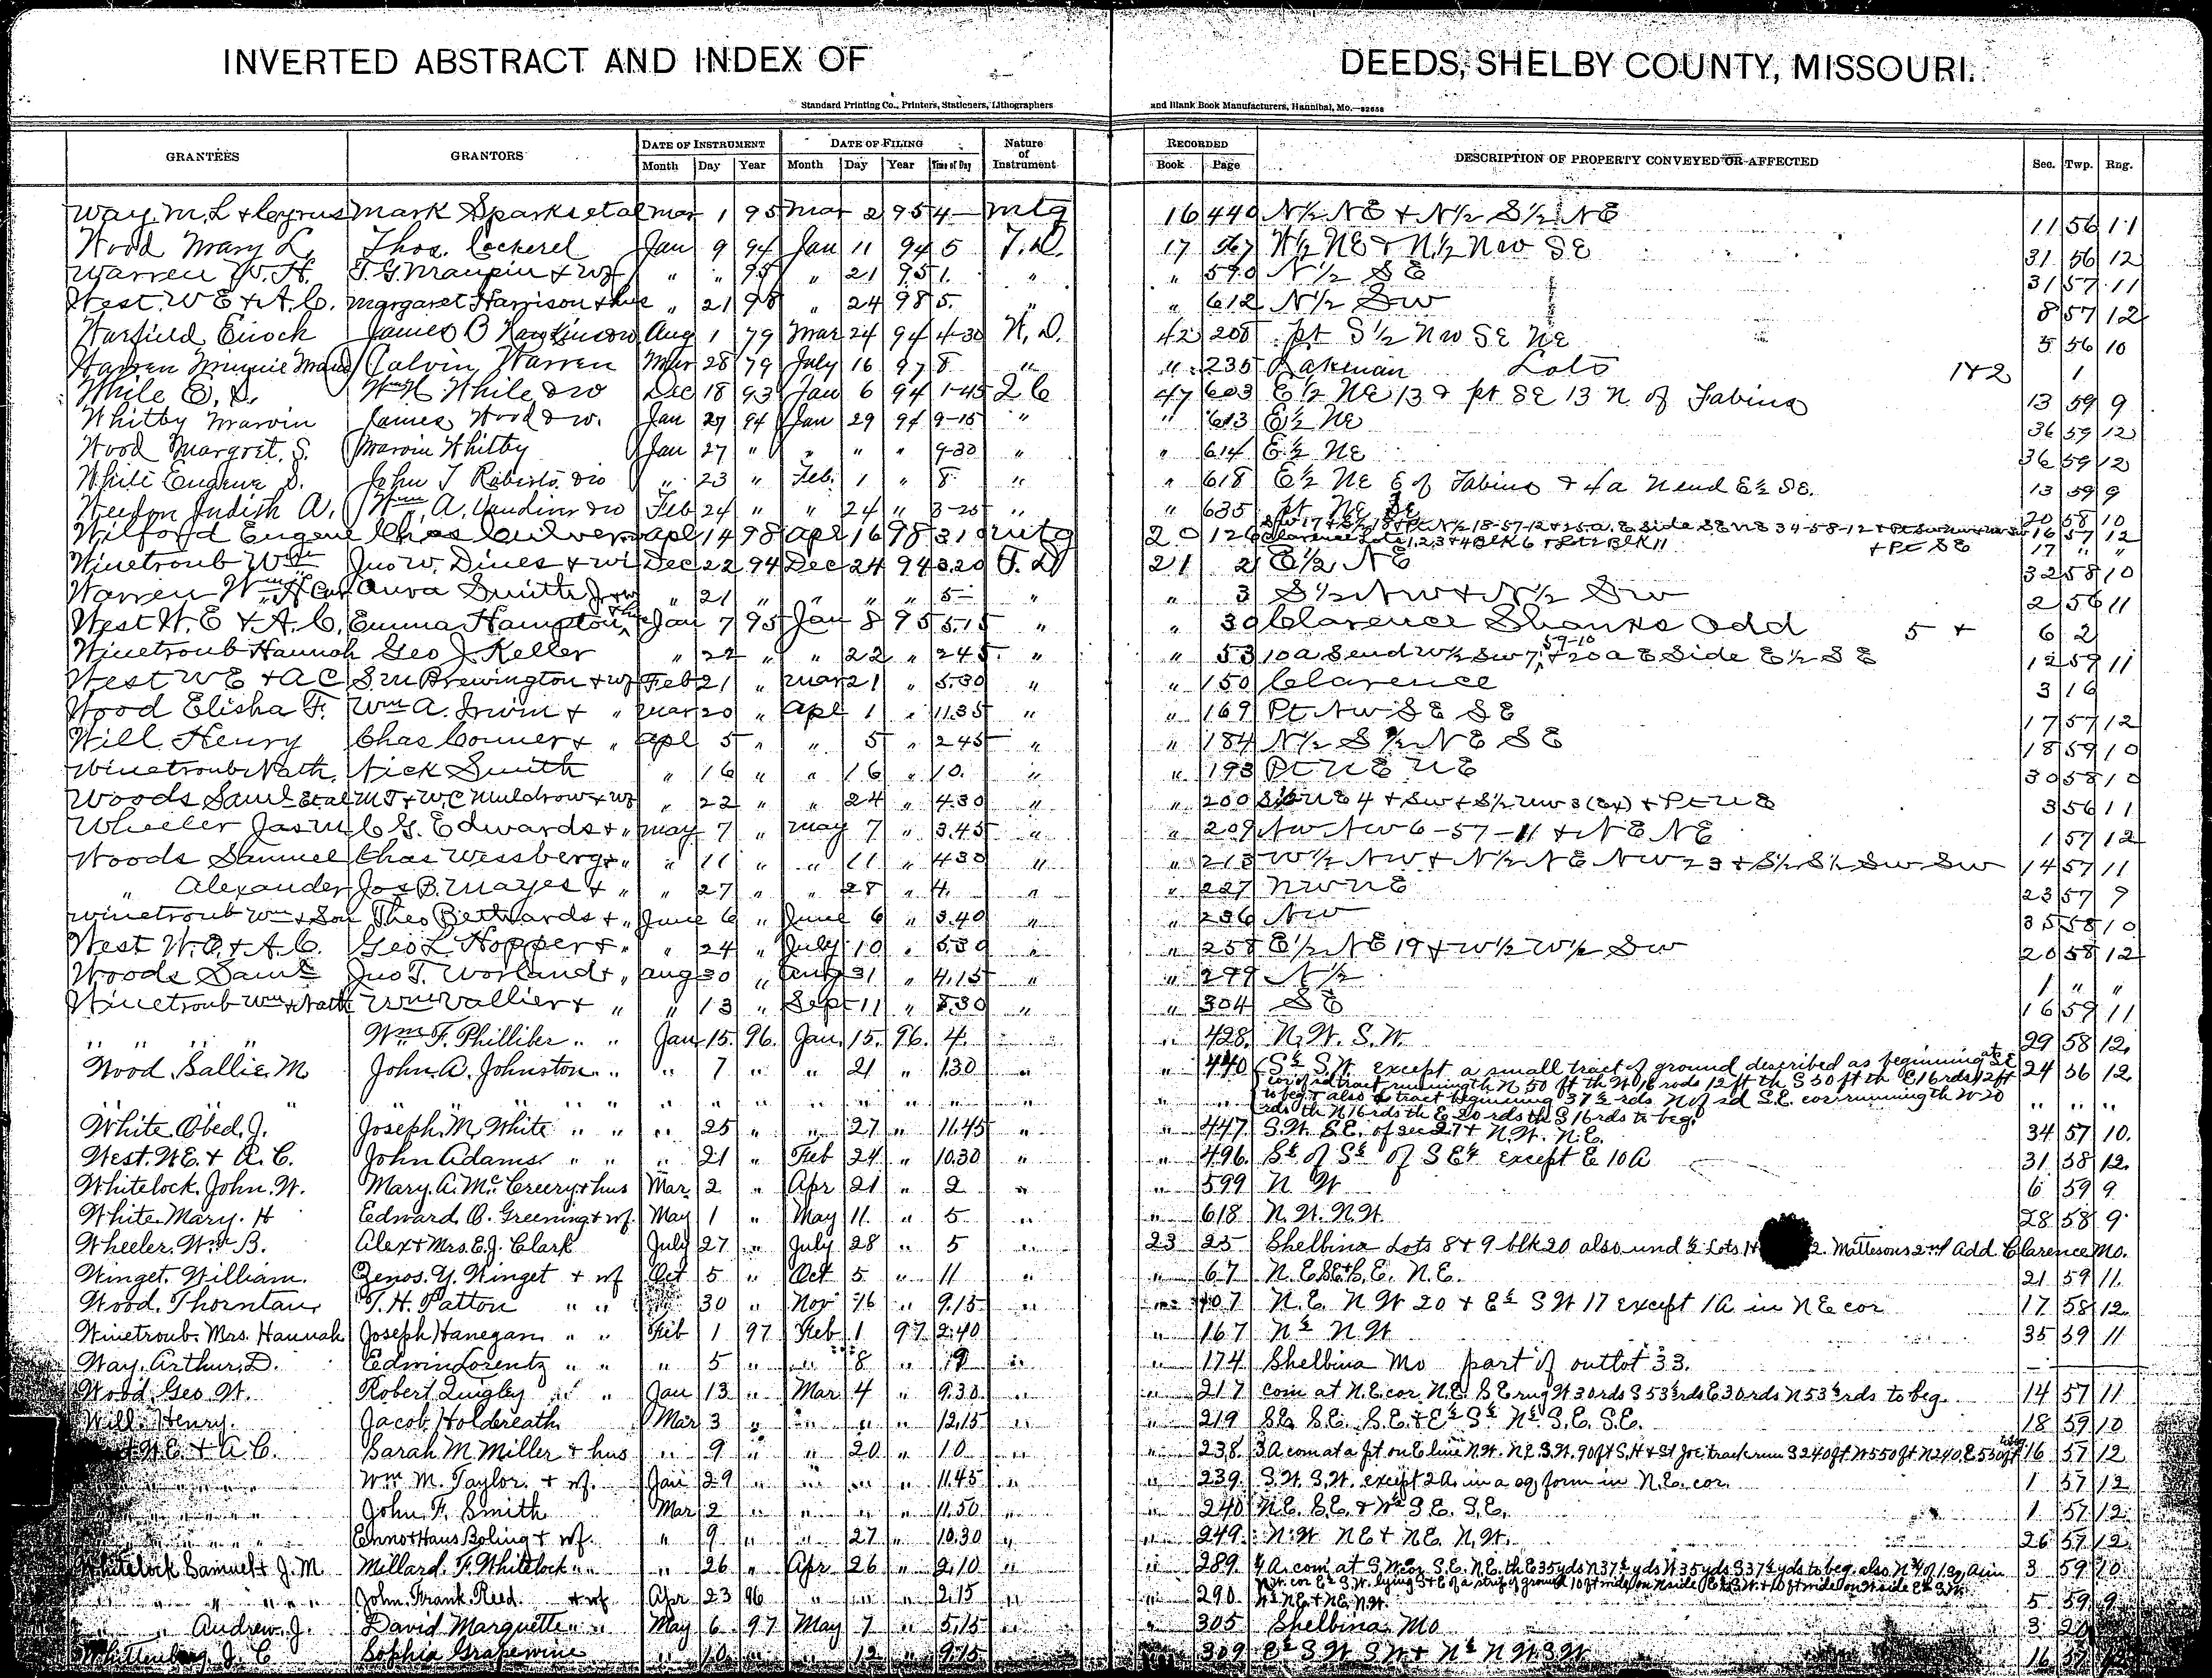 INVERTED ABSTRACT AND INDEX OF DEEDS, SHELBY COUNTY, MISSOURI.
Standard Printing Co., Printers, Stationers, Lithographers and Blank Book Manufacturers, Hannibal, Mo.
GRANTEES GRANTORS DATE OF INSTRUMENT DATE OF FILING Nature of Instrument RECORDED DESCRIPTION OF PROPERTY CONVEYED OR AFFECTED Sec. Twp. Rng.
Month Day Year Month Day Year Time of Day Book Page
Way M. L & Cyrus Mark Sparks et al Mar 1 95 Mar 2 95 4— mtg 16 440 N½ NE & N½ S½ NE 11 56 11
Wood Mary L. Thos. Cockerel Jan 9 94 Jan 11 94 5 T.D. 17 567 W½ NE & N½ NW SE 31 56 12
Warren W. H. T. G. Maupin & Wf " " 95 " 21 95 1. " " 590 N½ SE 31 57 11
West. W E & A. C. Margaret Harrison & hus " 21 98 " 24 98 5. " " 612 N½ SW 8 57 12
Warfield Enoch James B Aug 1 79 Mar 24 94 4-30 W.D. 42 208 pt S½ NW SE NE 5 56 10
Warren Minnie Maud Calvin Warren Mar 28 79 July 16 97 8 " " 235 Lakenan Lots 1&2 1
While E. S. Wm H. While & w Dec 18 93 Jan 6 94 1-45 2 C 47 603 E½ NE 13 & pt SE 13 N of Fabius 13 59 9
Whitby Marvin James Wood & w. Jan 27 94 Jan 29 94 9-15 " " 613 E½ NE 36 59 12
Wood Margret. S. Marvin Whitby Jan 27 " " " " 9-30 " " 614 E½ NE 36 59 12
While Eugene S. John T Roberts & w " 23 " Feb. 1 " 8 " " 618 E½ NE E of Fabius & 4a N end E½ SE. 13 59 9
Weedon Judith A. Wm. A. & w Feb 24 " " 24 " 3-25 " " 635 pt NE SE 20 58 10
Wilford Eugene Chas Culver Apl 14 98 Apl 16 98 mtg 20 126 16 57 12
Clarence Lots 1,2,3 & 4 Blk 6 & Lot 2 Blk 11 + Pt SE 17 " "
Winetroub Wm Jno W. Dines & wi Dec 22 94 Dec 24 94 3.20 T.D 21 2 E½ NE 32 58 10
Warren Wm H Anva Smith " 21 " " " " 5— " " 3 S½ NW & N½ SW 2 56 11
West W. E & A. C. Emma Hampton & hus Jan 7 95 Jan 8 95 5.15 " " 30 Clarence Shanks Add 5 + 6 2
Winetroub Hannah Geo J. Keller " 22 " " 22 " 2 45 " " 53 10a S end W½ SW 7, 59-10 & 20a E Side E½ SE 12 59 11
West WE & AC S. M Brewington & wf Feb 21 " Mar 21 " 5.30 " " 150 Clarence 3 16
Wood Elisha F. Wm A. Irwin & " Mar 20 " Apl 1 " 11.35 " " 169 Pt NW SE SE 17 57 12
Will Henry Chas Conner & " Apl 5 " " 5 " 2 45 " " 184 N½ S½ NE SE 18 59 10
Winetroub Nath. Nick Smith " 16 " " 16 " 10. " " 193 Pt NE NE 30 58 10
Woods Saml Et al M. J & W. C Muldrow & wf " 22 " " 24 " 4 30 " " 200 NE 4 + SW + S½ NW 3 (Ex) + Pt NE 3 56 11
Wheeler Jas M C G. Edwards & " May 7 " May 7 " 3.45 " " 209 NW NW 6-57-11 & NE NE 1 57 12
Woods Samuel Chas Wessberg & " " 11 " " 11 " 4 30 " " 213 W½ NW & N½ NE NW 23 & S½ S½ SW SW 14 57 11
" Alexander Jos B. Mayes & " " 27 " " 28 " 4. " " 227 NW NE 23 57 9
Winetroub Wm & Son Theo Bethards & " June 6 " June 6 " 3.40 " " 236 NW 35 58 10
West W. E. & A. C. Geo L Hopper & " " 24 " July 10 " 5.30 " " 258 E½ NE 19 & W½ W½ SW 20 58 12
Woods Saml Jno T. Worland & " Aug 30 " Aug 31 " 4.15 " " 299 N½ 1 " "
Winetroub Wm & Nath Wm Vallier & " " 13 " Sept 11 " 8.30 " " 304 SE 16 59 11
" " " " Wm F. Philliber " " Jan 15. 96. Jan. 15. 96. 4. " " 428. N.W. S.W. 29 58 12.
Wood. Sallie. M John. A. Johnston " " " 7 " " 21 " 1.30 " " 440 S½ S.W. except a small tract of ground described as beginning at S.E. 24 56 12.
cor of sd tract running th N 50 ft th W 16 rods 12 ft th S 50 ft th E 16 rds 12 ft
" " " " " " " " " " " " " " to beg. & also a tract beginning 37½ rds. N of sd S.E. cor running th W 20 " " "
rds th N 16 rds th E 20 rds th S 16 rds to beg.
White. Obed. J. Joseph. M. White " " " 25 " " 27 " 11.45 " " 447 S.W. S.E. of sec 27 & N.W. N.E. 34 57 10.
West. W.E. & A. C. John Adams " " " 21 " Feb 24 " 10.30 " " 496. S½ of S½ of SE¼ except E 10A 31 58 12.
Whitelock. John. W. Mary. A. Mc Creery & hus Mar 2 " Apr 21 " 2 " " 599 N W 6 59 9
White. Mary. H Edward. O. Greening & wf. May 1 " May 11. " 5 " " 618 N.W. N.W. 28 58 9
Wheeler. Wm B. Alex & Mrs. E.J. Clark July 27 " July 28 " 5 " 23 25 Shelbina Lots 8 & 9 blk 20 also und ½ Lots 1 2. Mattesons 2nd Add. Clarence Mo.
Winget. William. Zenos. Y. Winget & wf Oct 5 " Oct 5 " 11 " " 67 N.E. N.E. 21 59 11.
Wood. Thornton T. H. Patton " " 30 " Nov 16 " 9.15 " " 107 N.E. N W 20 & E½ S W 17 except 1A in NE cor 17 58 12.
Winetroub. Mrs. Hannah Joseph Hanegan " " Feb 1 97 Feb 1 97 2.40 " 167 N½ N.W. 35 59 11
Way. Arthur. D. Edwin Lorentz " " " 5 " " 8 " " " 174 Shelbina Mo part of outlot 33. —
Wood. Geo. W. Robert Quigley " " Jan 13 " Mar 4 " 9.30 " " 217 com at N.E. cor N.E. S.E. rug W 30 rds S 53½ rds E 30 rds N 53½ rds to beg. 14 57 11
Will. Henry. Jacob Holdereath. Mar 3 " " " " 12.15 " " 219 S.E. S.E. & E½ S½ N½ S.E. S.E. 18 59 10
W.E. & A C. Sarah M Miller & hus " 9 " " 20 " 10 " " 238. 3A com at a pt on E line N.W. N.E. S.W. 90 ft S. H & St Joe track run S 240 ft W 550 ft N 240 E 550 ft 16 57 12
Wm M. Taylor. & wf. Jan 29 " " " " 11.45 " " 239. S.W. S.W. except 2A. in a sq. form in N.E. cor. 1 57 12
" " " " John F. Smith Mar 2 " " " " 11.50 " " 240 N.E. S.E. & W½ S.E. S.E. 1 57 12
" " " " Enno & Haus Boling & wf. " 9 " " 27 " 10.30 " " 249. N.W NE & NE. N.W. 26 57 12
Whitelock Samuel & J. M. Millard. F. Whitelock " " 26 " Apr 26 " 2.10 " " 289. ¼ A. com at S.W. cor S.E. N.E. th E 35 yds N 37½ yds W 35 yds S 37½ yds to beg. also 3 59 10
N.W. cor E½ S.W. lying S & E of a strip of ground 10 ft wide on N side E½ S.W. & 10 ft wide on W side E½ S.W.
" " " " John. Frank. Reed. & wf Apr 23 96 " " " 2.15 " " 290 W½ N.E. & N.E. N.W. 5 59 9
" " Andrew. J. David Marquette " " May 6 97 May 7 " 5.15 " " 305 Shelbina. Mo 3 20
Whittenberg J. C Sophia Grapewine " 10 " " 12 " 9.15 " " 309 E½ S W S W & N½ N W S W 16 57